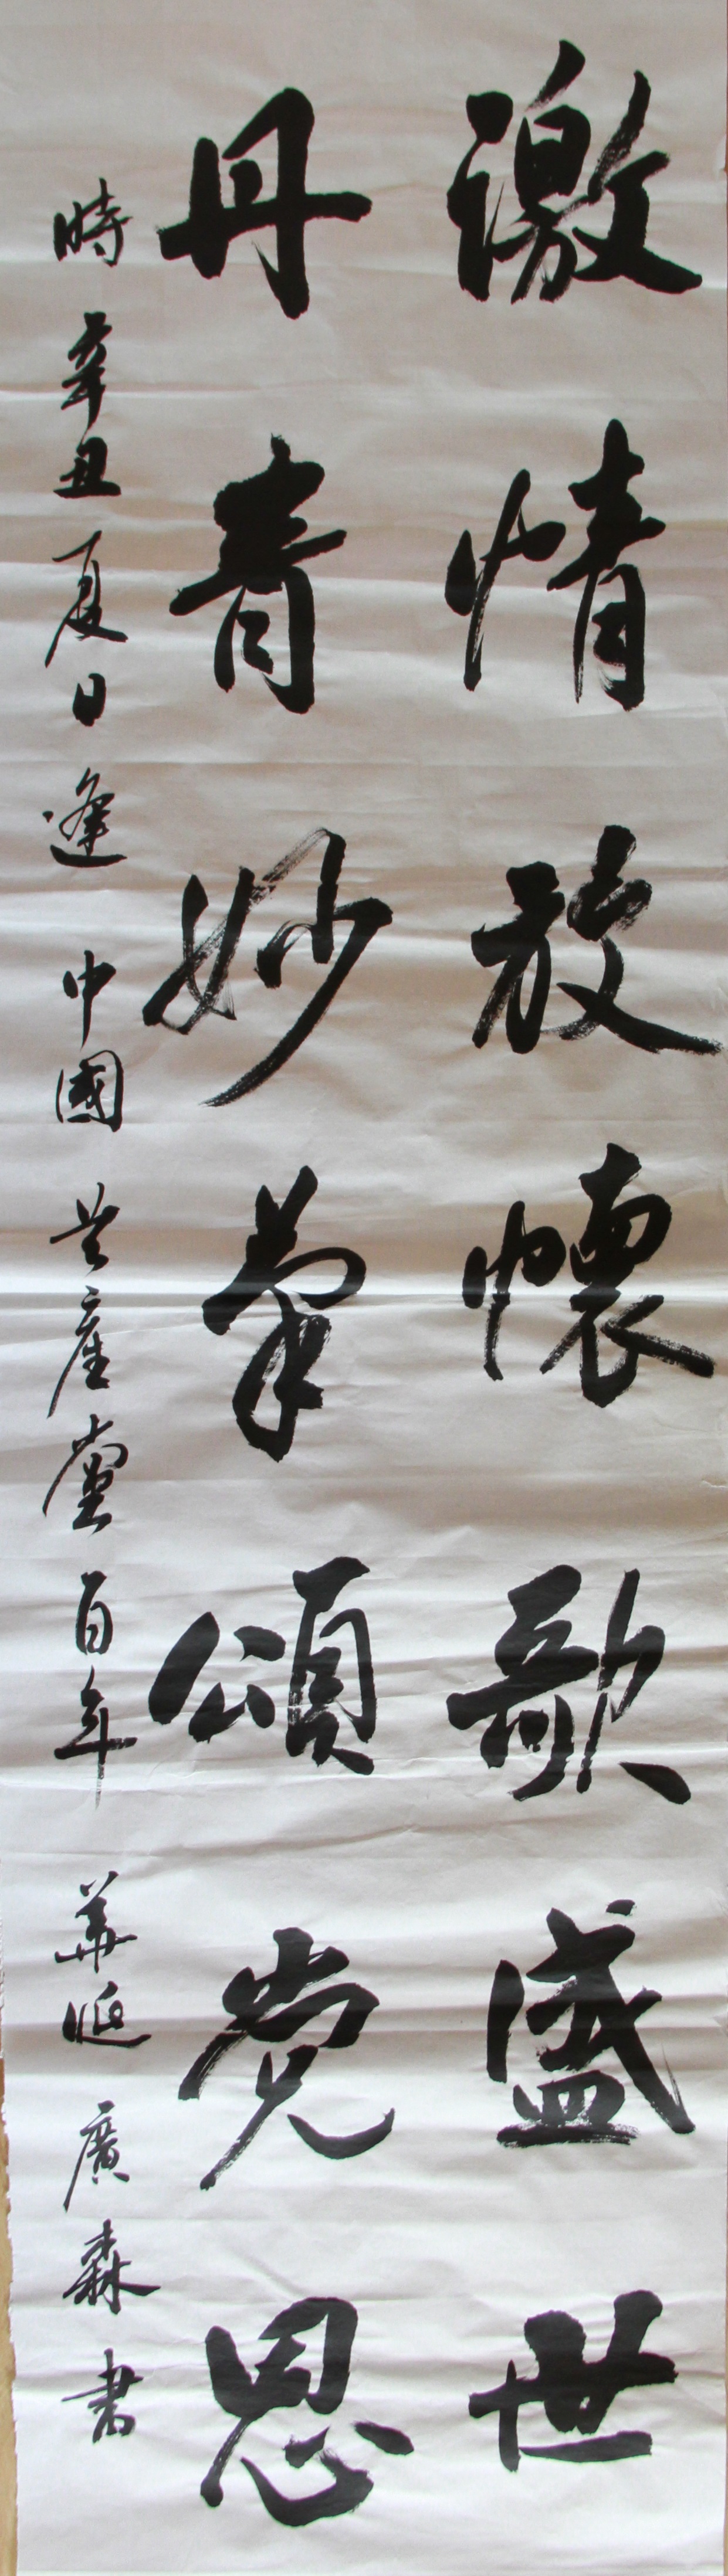 激情放懷歌盛世
丹青妙筆頌党恩
時辛丑夏日逢中國共產黨百年華誕廣森書